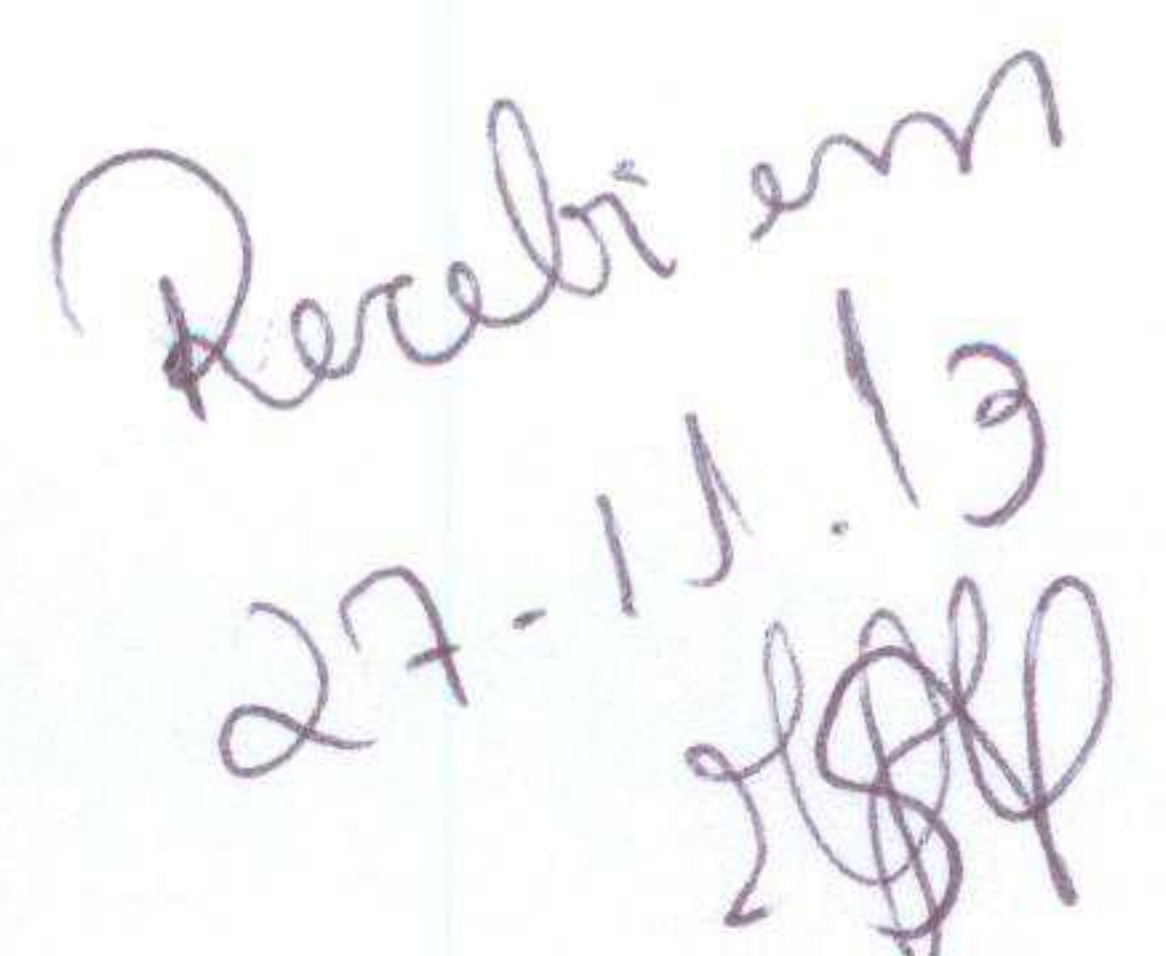 Recebi em
27-11.13